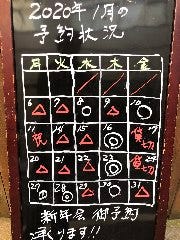 2020年1月の
予約状況
月 火 水 木 金
6 7 8 9 10
祝 14 15 16 17 貸切
20 21 22 23 24 貸切
27 28 29 30 31
新年会 御予約
承ります!!